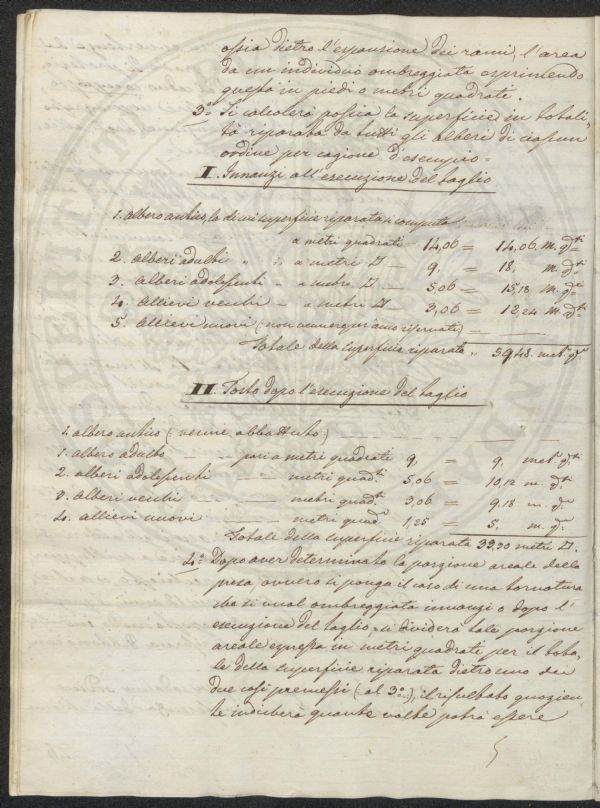 ossia dietro l'espansione dei rami, l'area
da un individuo ombreggiata esprimendo
questa in piedi o metri quadrati.
3.° Si calcolerà poscia la superficie in totali-
tà riparata da tutti gli alberi di ciascun
ordine per cagione d'esempio =
I. Innanzi all'esecuzione del taglio
1. albero antico, la di cui superficie riparata si computa
a metri quadrati 14,06 = 14,06. m. q.ti
2. Alberi adulti " " a metri □ — 9, = 18, m. q.ti
3. Alberi adolescenti - a metri □ — 5,06 = 15,18 m. q.ti
4. Allievi vecchi - a metri □ — 3,06 = 12,24 m. q.ti
5. Allievi nuovi (non numero per anco riservati) —
Totale della superficie riparata " 59,48. met. q.
II. Tosto dopo l'esecuzione del taglio
1. albero antico (venne abbattuto) — — — "
1. albero adulto — — pari a metri quadrati 9, = 9, met. q.ti
2. alberi adolescenti — — metri quad.ti 5,06 = 10,12 m. q.
3. Alberi vecchi — — — metri quad.ti 3,06 = 9,18 m. q.
4. allievi nuovi — — metri quad. 1,25 = 5, m. q.
Totale della superficie riparata 33,30 metri □.
4.° Dopo aver determinato la porzione areale della
presa ovvero si ponga il caso di una tornatura
che si vuol ombreggiata innanzi o dopo l'
esecuzione del taglio, si dividerà tale porzione
areale espressa in metri quadrati per il tota-
le della superficie riparata dietro uno dei
due casi premessi (al 3.°), il risultato quozien-
te indicherà quante volte potrà essere